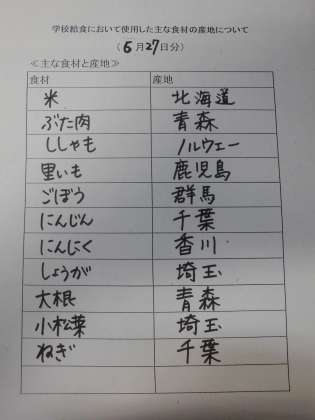 学校給食において使用した主な食材の産地について
（6月27日分）
≪主な食材と産地≫
食材 産地
米 北海道
ぶた肉 青森
ししゃも ノルウェー
里いも 鹿児島
ごぼう 群馬
にんじん 千葉
にんにく 香川
しょうが 埼玉
大根 青森
小松菜 埼玉
ねぎ 千葉